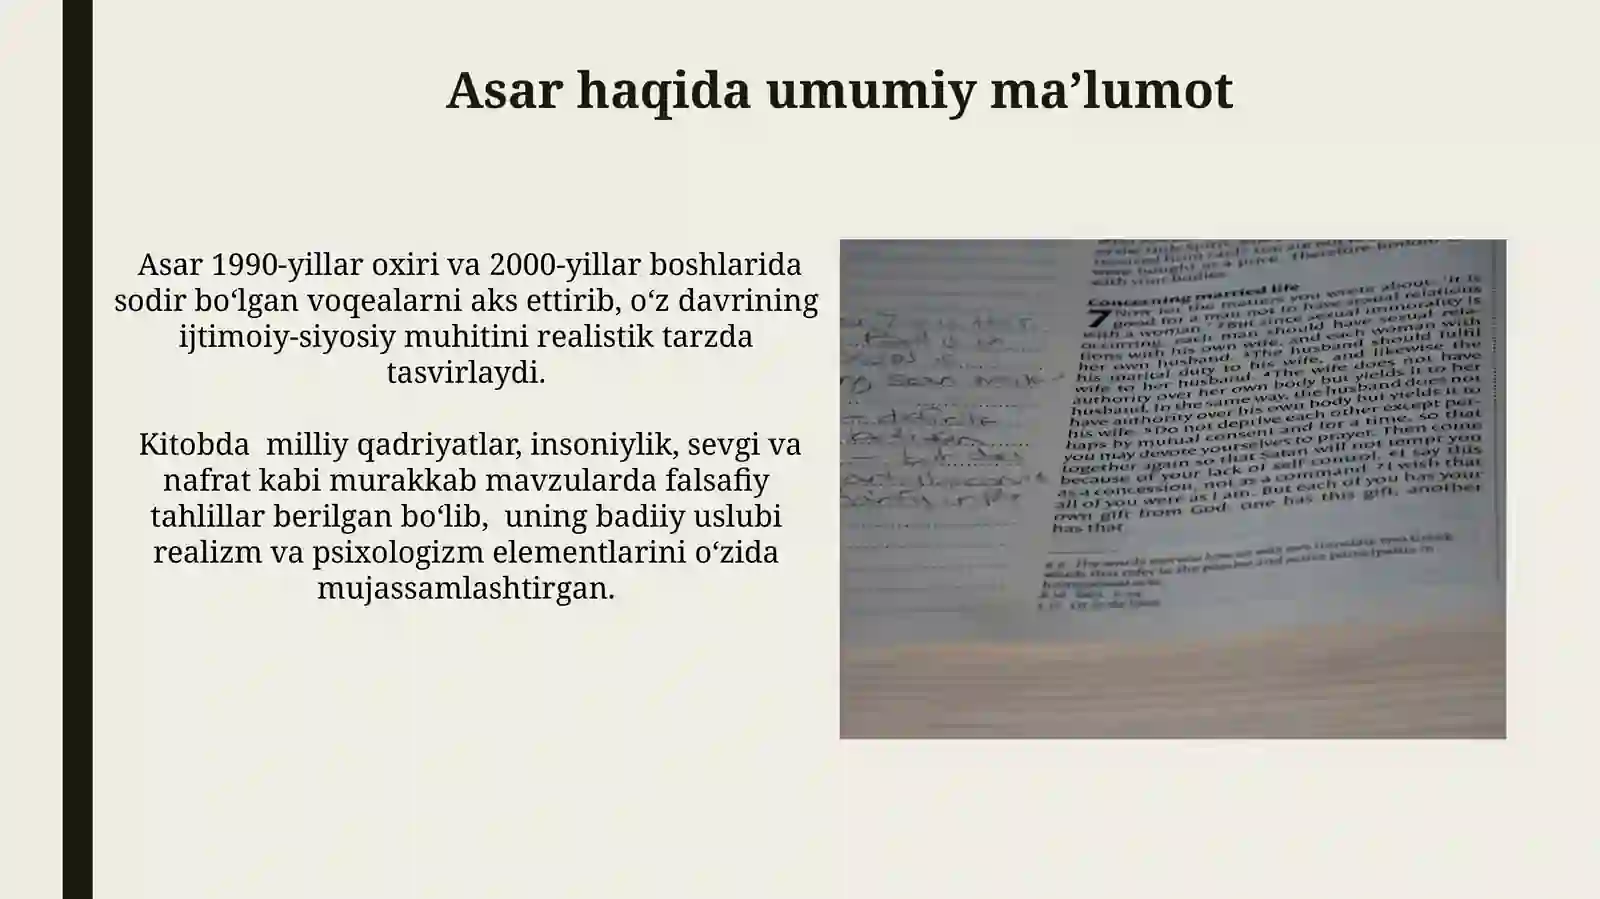 Asar haqida umumiy ma’lumot
Asar 1990-yillar oxiri va 2000-yillar boshlarida
sodir bo‘lgan voqealarni aks ettirib, o‘z davrining
ijtimoiy-siyosiy muhitini realistik tarzda
tasvirlaydi.
Kitobda  milliy qadriyatlar, insoniylik, sevgi va
nafrat kabi murakkab mavzularda falsafiy
tahlillar berilgan bo‘lib,  uning badiiy uslubi
realizm va psixologizm elementlarini o‘zida
mujassamlashtirgan.
were bought at a price. Therefore
with your bodies.
Concerning married life
7 Now for the matters you wrote about: It is
good for a man not to have sexual relations
with a woman. 2 But since sexual immorality is
occurring, each man should have sexual rela-
tions with his own wife, and each woman with
her own husband. 3 The husband should fulfil
his marital duty to his wife, and likewise the
wife to her husband. 4 The wife does not have
authority over her own body but yields it to her
husband. In the same way, the husband does not
have authority over his own body but yields it to
his wife. 5 Do not deprive each other except per-
haps by mutual consent and for a time, so that
you may devote yourselves to prayer. Then come
together again so that Satan will not tempt you
because of your lack of self-control. 6 I say this
as a concession, not as a command. 7 I wish that
all of you were as I am. But each of you has your
own gift from God; one has this gift, another
has that.